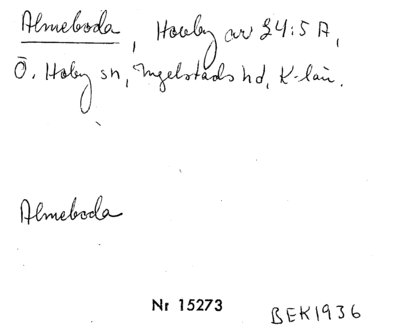 Almeboda, Hoby av 24:5 A,
Ö. Hoby sn, Ingelstads hd, K-län.
Almeboda
Nr 15273
BEK1936